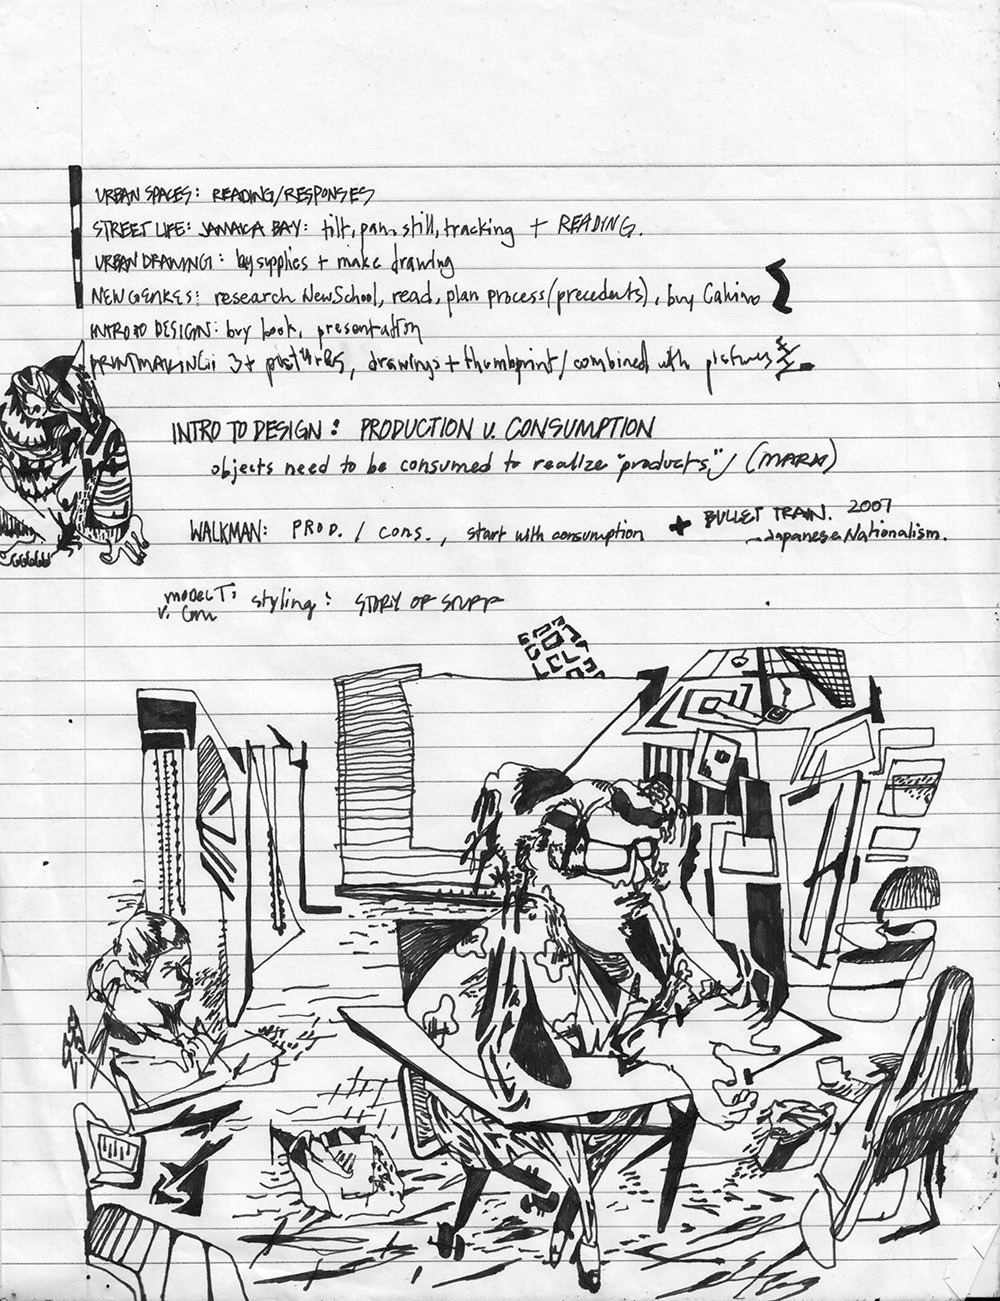 URBAN SPACES: READING/RESPONSES
STREET LIFE: JAMAICA BAY: tilt, pan, still, tracking + READING.
URBAN DRAWING: by supplies + make drawing
NEW GENRES: research New School, read, plan process (precedents), buy
INTRO TO DESIGN: buy book, presentation
PRINTMAKING: 3+ pictures, drawings + thumbprint / combined with pictures
INTRO TO DESIGN: PRODUCTION V. CONSUMPTION
objects need to be consumed to realize "products" / (MARX)
WALKMAN: PROD. / cons., start with consumption + BULLET TRAIN. 2007
Japanese Nationalism.
MODEL T: styling: STORY OF STUFF
v.